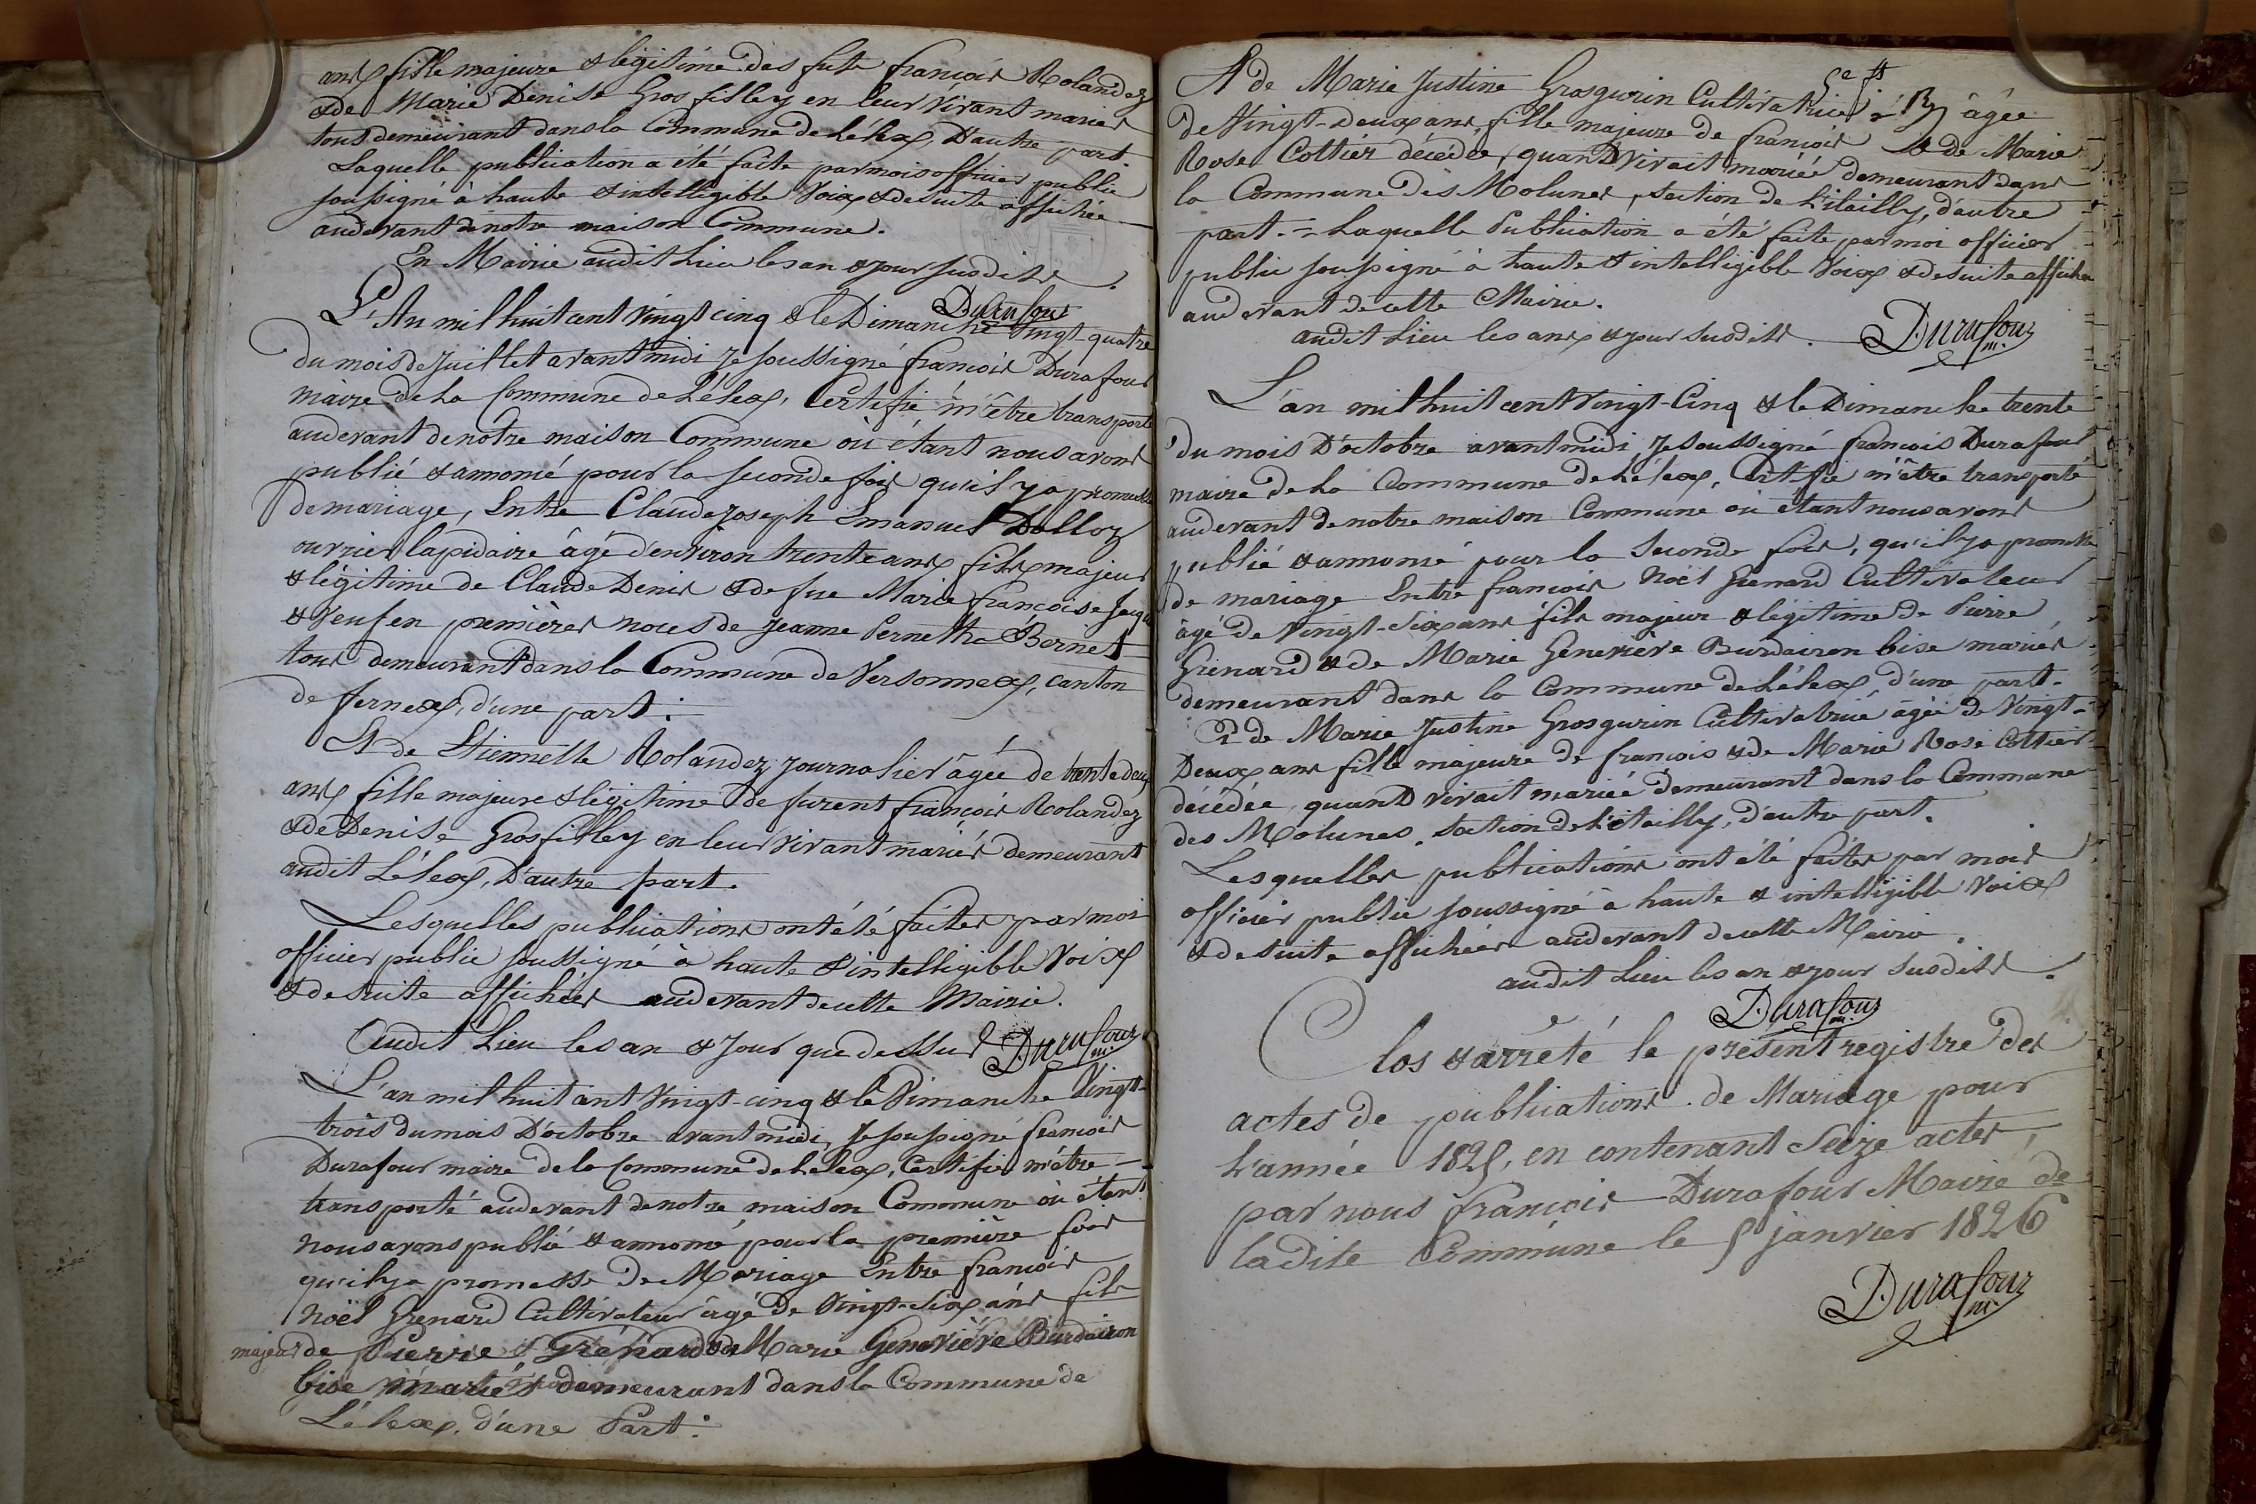 ans fille majeure & légitime des futs francois Rolandez
& de Marie Denise Gros filley en leur vivant mariés
tous demeurant dans la Commune de Lélex, D'autre part.
Laquelle publication a été faite par mois officier public
soussigné à haute & intelligible Voix & desuite affichée
audevant de notre maison Commune.
En Mairie audit Lieu les an & jour susdits.
Durafour
L'An mil huit cent vingt cinq & le Dimanche Vingt-quatre
du mois de Juillet avant midi Je soussigné francois Durafour
maire de la Commune de Lélex, Certifie m'être transporté
audevant de notre maison Commune où étant nous avons
publié & annoncé pour la seconde fois qu'il y a promesse
de mariage, Entre Claude Joseph Emanuel Dalloz
ouvrier lapidaire âgé d'environ trente ans fils majeur
& légitime de Claude Denis & de fue Marie francoise
& veuf en premières noces de Jeanne Pernette Bornet
tous demeurant dans la Commune de Versonnex, canton
de fernex, d'une part.
Et de Etiennette Rolandez Journalier âgée de trente deux
ans fille majeure & légitime de furent francois Rolandez
& de Denise Grosfilley en leur vivant mariés demeurant
audit Lélex, D'autre part.
Lesquelles publications ont été faites par moi
officier public soussigné à haute & intelligible Voix
& desuite affichées audevant de cette Mairie.
Audit Lieu les an & jour que dessus Durafour m.
L'an mil huit cent Vingt-cinq & le Dimanche Vingt-
trois du mois D'octobre avant midi, Je soussigné francois
Durafour maire de la Commune de Lélex, Certifie m'être
transporté audevant de notre maison Commune où étant
nous avons publié & annoncé pour la première fois
qu'il y a promesse de Mariage Entre francois
Noël Grenard Cultivateur âgé de Vingt-Six ans fils
majeur de Pierre Grénard & de Marie Geneviève Burdairon
bise mariés demeurant dans la Commune de
Lélex, d'une Part.
Et de Marie Justine Grosgurin Cultivatrice âgée
de Vingt-Deux ans, fille majeure de francois & de Marie
Rose Cottier décédée, quand vivait mariée demeurant dans
la Commune des Molunes, section de L'itailly, d'autre
part. = Laquelle Publication a été faite par moi officier
public soussigné à haute & intelligible Voix & desuite affichée
audevant de cette Mairie.
audit Lieu les ans & jour susdits. Durafour m.
L'an mil huit cent Vingt-Cinq & le Dimanche trente
du mois D'octobre avant midi Je soussigné francois Durafour
maire de la Commune de Lélex, Certifie m'être transporté
audevant de notre maison Commune où étant nous avons
publié & annoncé pour la Seconde fois, qu'il y a promesse
de mariage Entre francois Noël Grenard Cultivateur
âgé de Vingt-Six ans fils majeur & légitime de Pierre
Grenard & de Marie Geneviève Burdairon bise mariés
demeurant dans la Commune de Lélex d'une part.
Et de Marie Justine Grosgurin Cultivatrice âgée de Vingt-
Deux ans fille majeure de francois & de Marie Rose Cottier
décédée, quand vivait mariée demeurant dans la Commune
des Molunes, section de L'étailly, d'autre part.
Lesquelles publications ont été faites par mois
officier public soussigné à haute & intelligible Voix
& desuite affichées audevant de cette Mairie.
audit Lieu les an & jour susdits.
Durafour m.
Clos & arrêté le présent registre des
actes de publications de Mariage pour
L'année 1825, en contenant Seize actes,
par nous francois Durafour Maire de
ladite Commune le 5 janvier 1826
Durafour m.